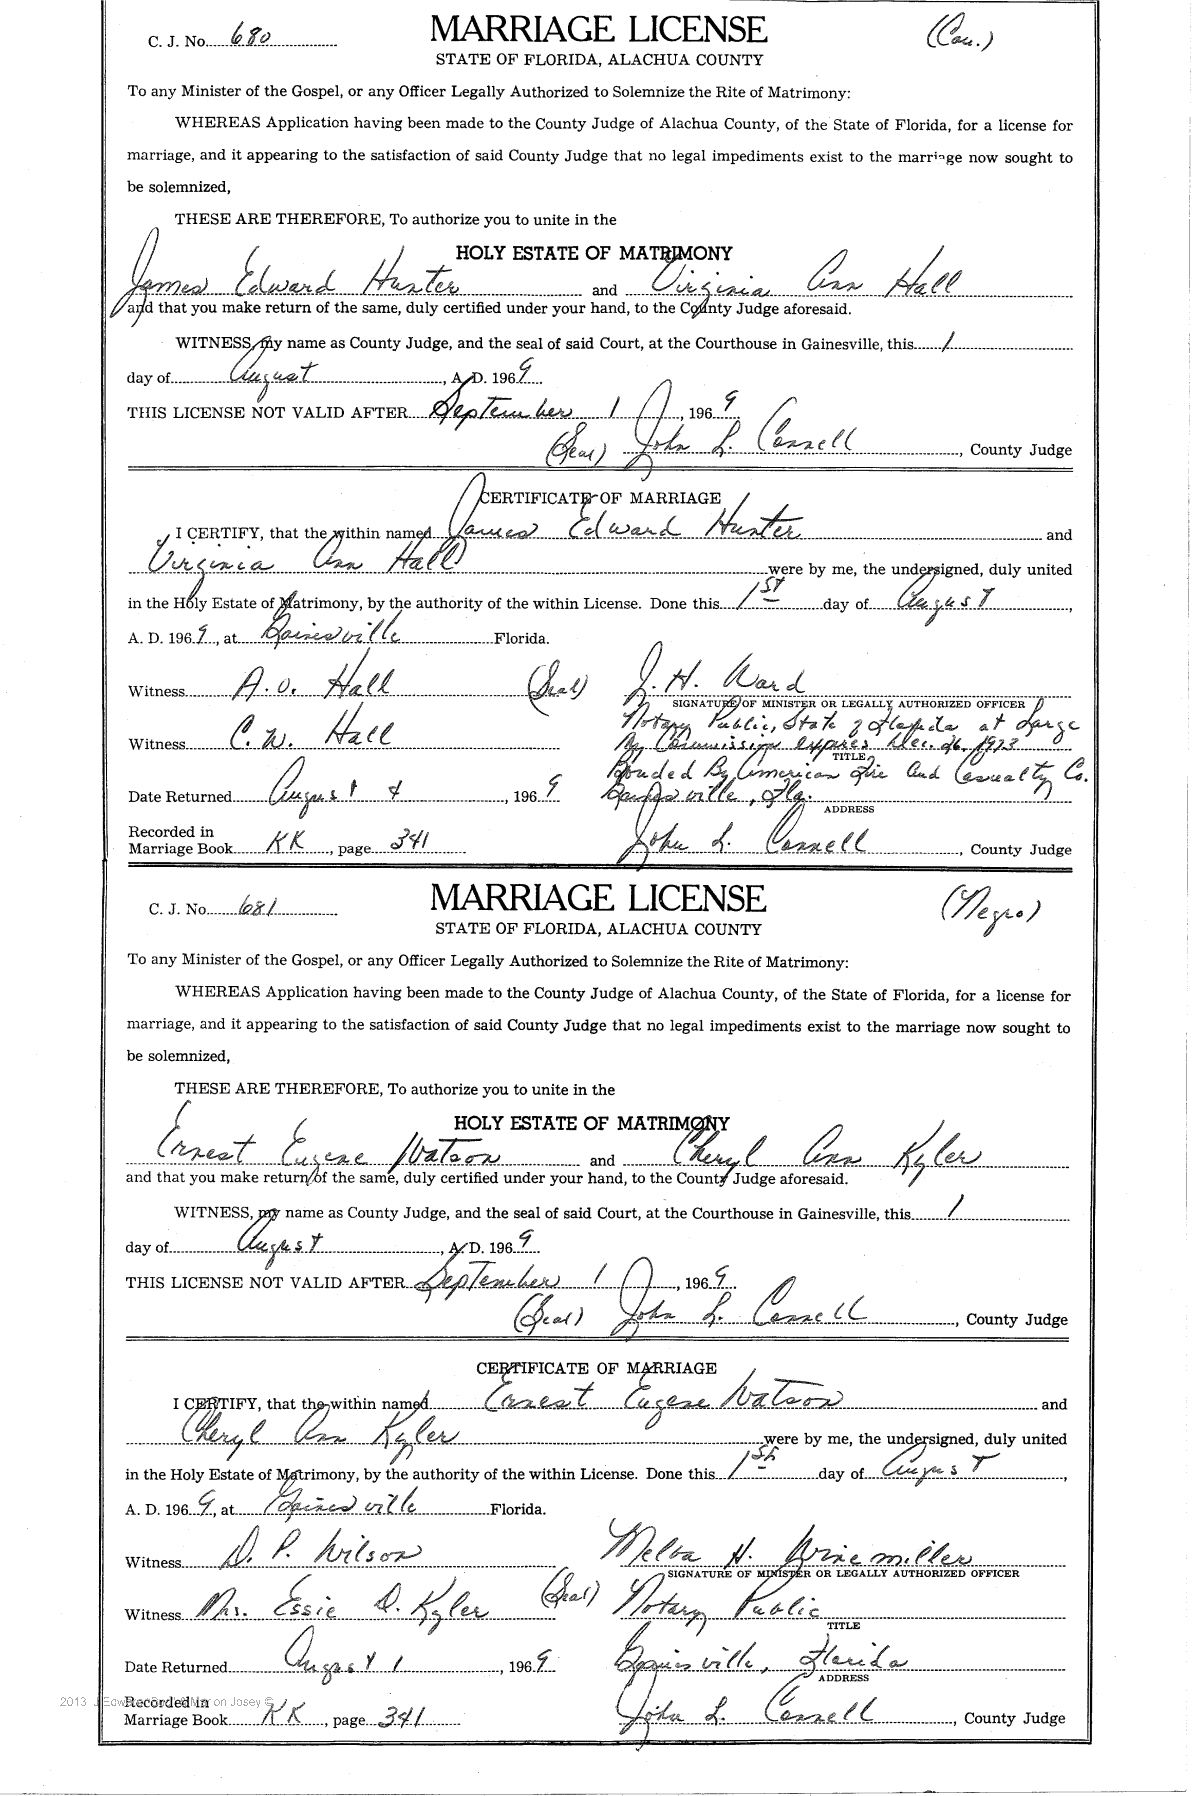 C. J. No. 680 MARRIAGE LICENSE (Cau.)
STATE OF FLORIDA, ALACHUA COUNTY
To any Minister of the Gospel, or any Officer Legally Authorized to Solemnize the Rite of Matrimony:
WHEREAS Application having been made to the County Judge of Alachua County, of the State of Florida, for a license for
marriage, and it appearing to the satisfaction of said County Judge that no legal impediments exist to the marriage now sought to
be solemnized,
THESE ARE THEREFORE, To authorize you to unite in the
HOLY ESTATE OF MATRIMONY
James Edward Hunter and Virginia Ann Hall
and that you make return of the same, duly certified under your hand, to the County Judge aforesaid.
WITNESS, my name as County Judge, and the seal of said Court, at the Courthouse in Gainesville, this 1
day of August, A. D. 1969
THIS LICENSE NOT VALID AFTER September 1, 1969
(Seal) John L. Connell, County Judge
CERTIFICATE OF MARRIAGE
I CERTIFY, that the within named James Edward Hunter and
Virginia Ann Hall were by me, the undersigned, duly united
in the Holy Estate of Matrimony, by the authority of the within License. Done this 1st day of August,
A. D. 1969, at Gainesville Florida.
Witness A. O. Hall (Seal) J. H. Ward
SIGNATURE OF MINISTER OR LEGALLY AUTHORIZED OFFICER
Notary Public, State of Florida at Large
Witness C. W. Hall My Commission expires Dec. 26, 1973
TITLE
Bonded By American Fire and Casualty Co.
Date Returned August 4, 1969 Gainesville, Fla.
ADDRESS
Recorded in
Marriage Book KK, page 341 John L. Connell, County Judge
C. J. No. 681 MARRIAGE LICENSE (Negro)
STATE OF FLORIDA, ALACHUA COUNTY
To any Minister of the Gospel, or any Officer Legally Authorized to Solemnize the Rite of Matrimony:
WHEREAS Application having been made to the County Judge of Alachua County, of the State of Florida, for a license for
marriage, and it appearing to the satisfaction of said County Judge that no legal impediments exist to the marriage now sought to
be solemnized,
THESE ARE THEREFORE, To authorize you to unite in the
HOLY ESTATE OF MATRIMONY
Ernest Eugene Watson and Cheryl Ann Kyler
and that you make return of the same, duly certified under your hand, to the County Judge aforesaid.
WITNESS, my name as County Judge, and the seal of said Court, at the Courthouse in Gainesville, this 1
day of August, A. D. 1969
THIS LICENSE NOT VALID AFTER September 1, 1969
(Seal) John L. Connell, County Judge
CERTIFICATE OF MARRIAGE
I CERTIFY, that the within named Ernest Eugene Watson and
Cheryl Ann Kyler were by me, the undersigned, duly united
in the Holy Estate of Matrimony, by the authority of the within License. Done this 1st day of August,
A. D. 1969, at Gainesville Florida.
Witness D. P. Wilson Melba H. Winemiller
SIGNATURE OF MINISTER OR LEGALLY AUTHORIZED OFFICER
Witness Mrs. Essie D. Kyler (Seal) Notary Public
TITLE
Date Returned August 1, 1969 Gainesville, Florida
ADDRESS
Recorded in
Marriage Book KK, page 341 John L. Connell, County Judge